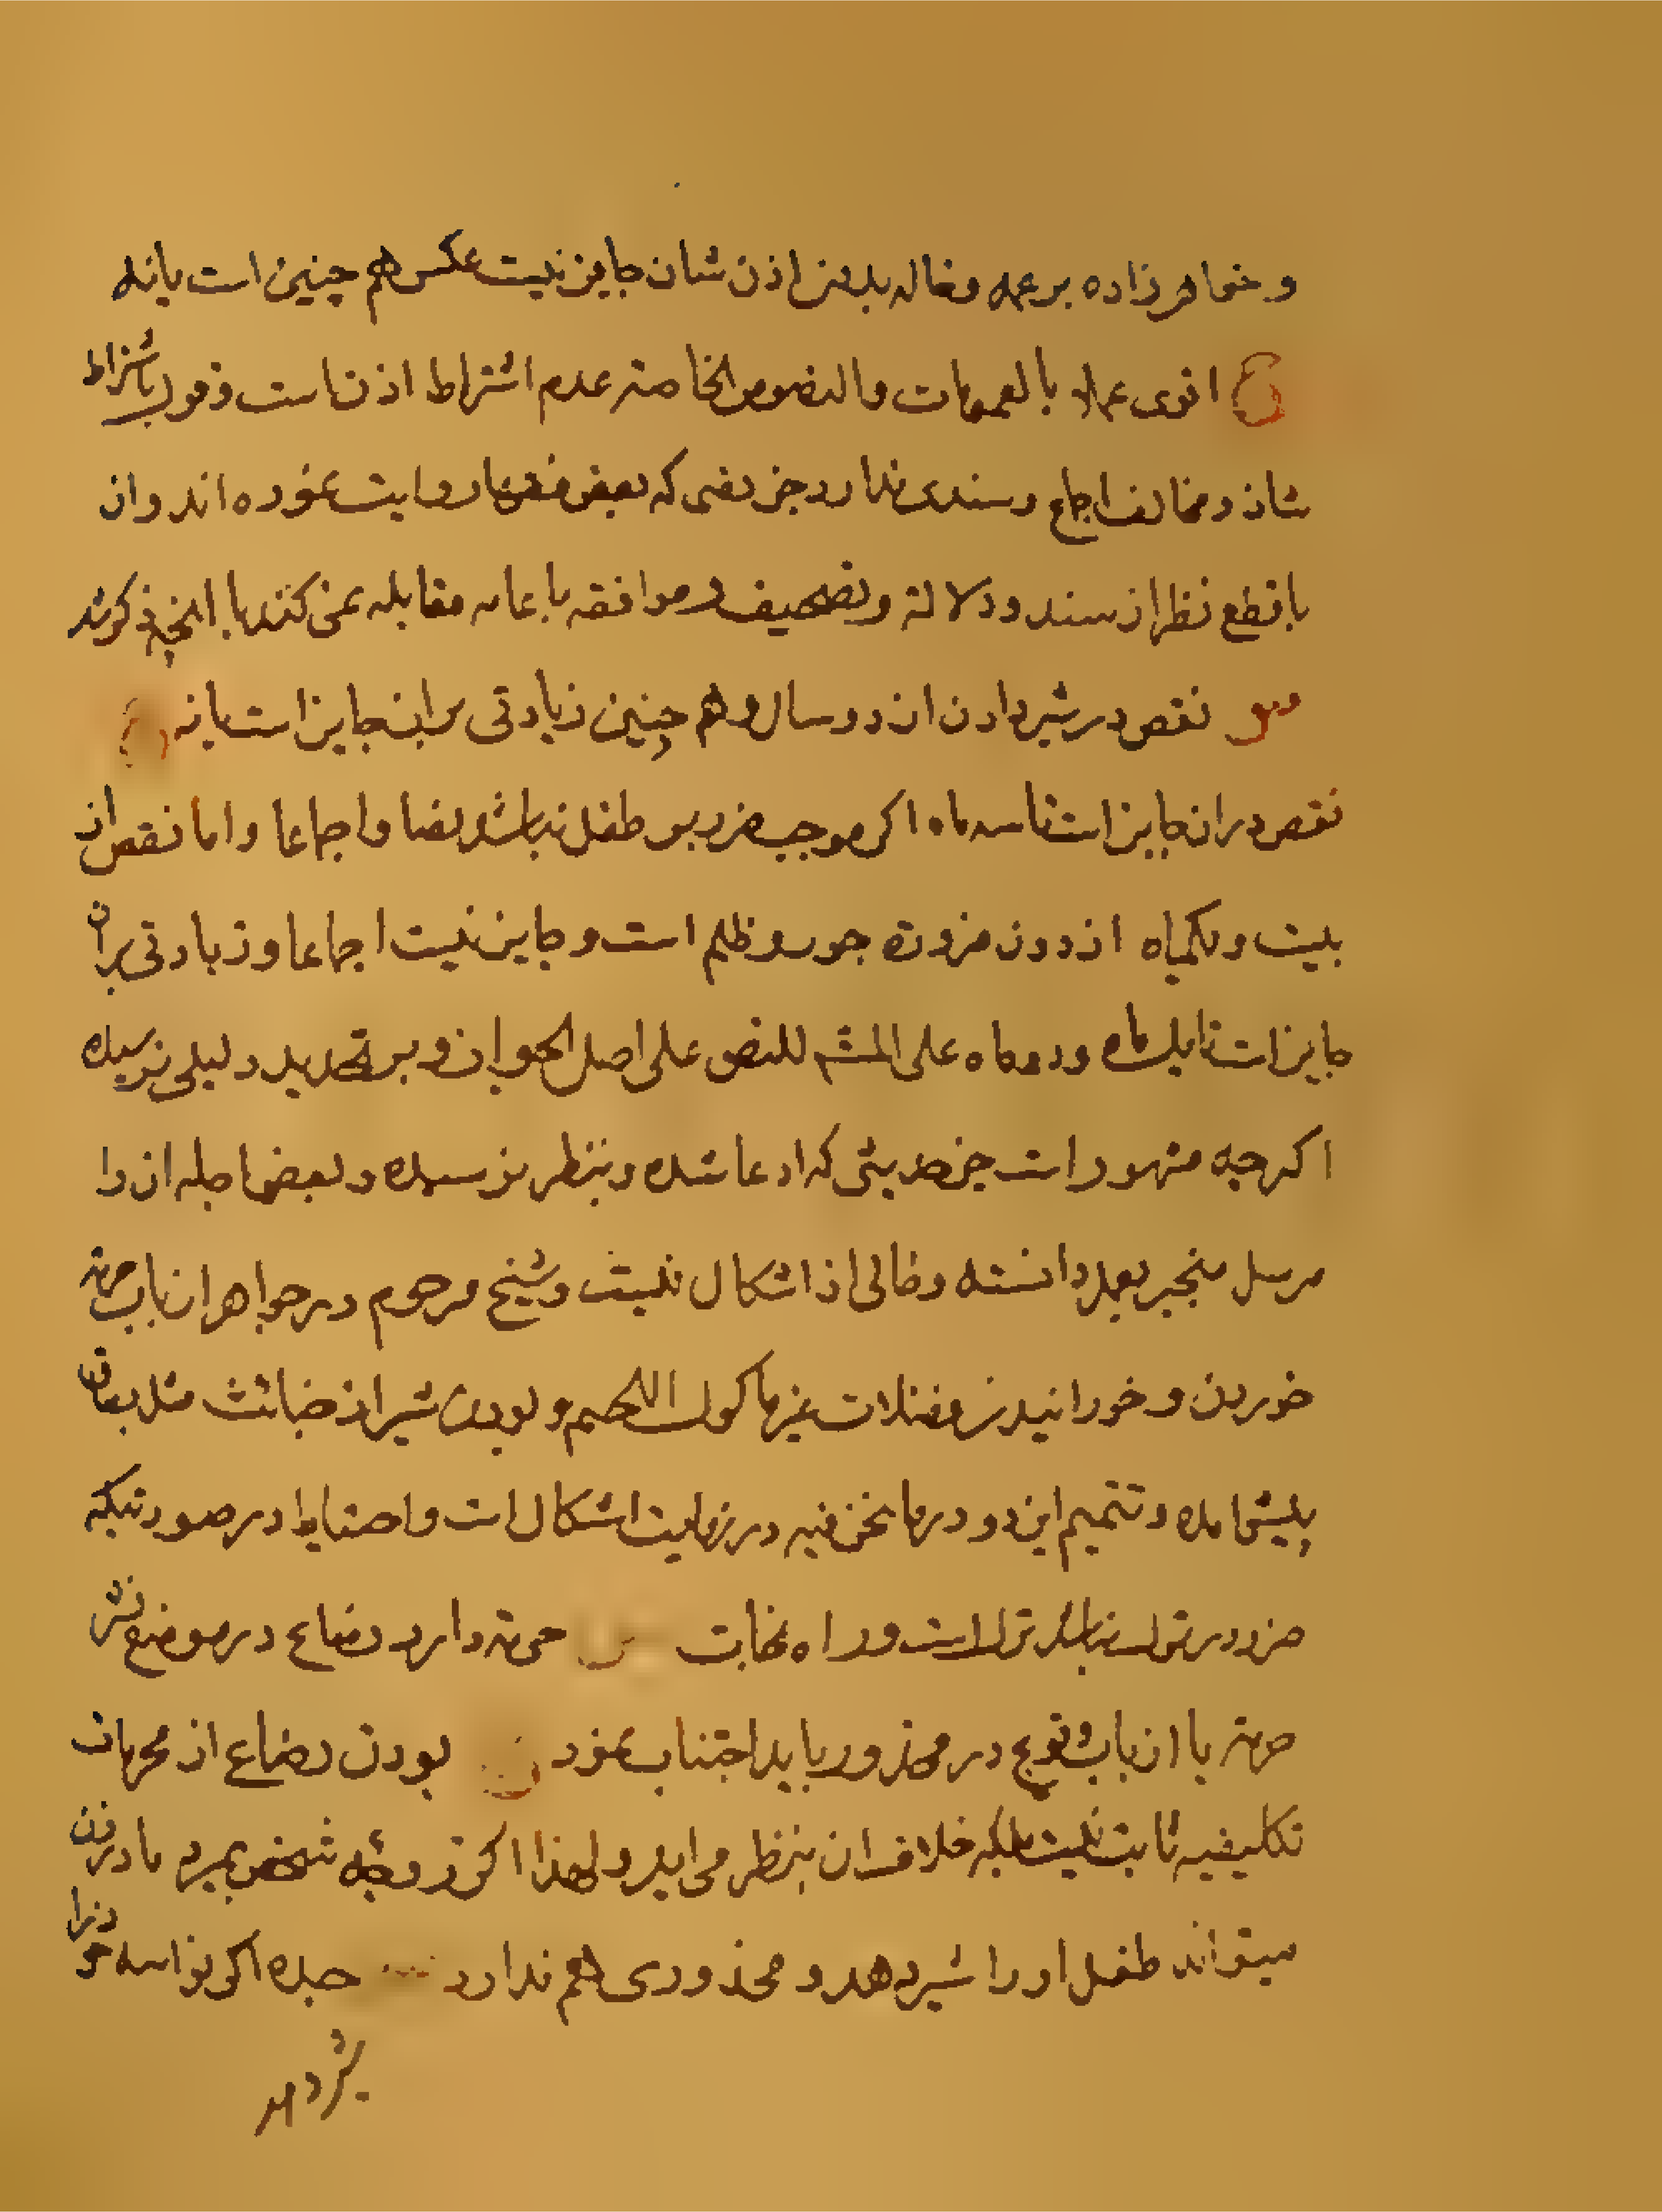 و خواهر زاده بر عمه و خاله بدون اذن شان جایز نیست عکس هم چنین است یا نه
ج اقوی عملا بالعمومات والنصوص الخاصة عدم اشتراط اذن است و قول باشتراط
شاذ و مخالف اجماع و سندی ندارد جز نصی که بعض فقها روایت نموده اند و ان
با قطع نظر از سند و دلالة و تضعیف و موافقه با عامه مقابله نمی کند با انچه ذکر شد
س نقص در شیر دادن از دو سال و هم چنین زیادتی بر ان جایز است یا نه ج
نقص در ان جایز است تا سه ماه اگر موجب ضرر بر طفل نباشد نصا و اجماعا و اما نقص از
بیست و یکماه از دون ضرورة جور و ظلم است و جایز نیست اجماعا و زیادتی بر ان
جایز است تا یک ماه و دو ماه علی المشهور للنص علی اصل الجواز و بر تحدید دلیلی نرسیده
اگرچه مشهور است جز حدیثی که ادعا شده و بنظر نرسیده و بعض اجله ان را
مرسل منجبر بعمل دانسته و خالی از اشکال نیست و شیخ مرحوم در جواهر از باب حرمة
خوردن و خورانیدن فضلات غیر ماکول اللحم و بودن شیر از خبائث مثل بصاق
پیش امده و تتمیم این دو در ما نحن فیه در نهایت اشکال است و احتیاط در صورتیکه
ضرر در ترک نباشد ترک است و راه نجات س حرمة دارد رضاع در موضع نشر
حرمة یا از باب وقوع در محذور باید اجتناب نمود ج بودن رضاع از محرمات
تکلیفیه ثابت نیست بلکه خلاف ان بنظر می اید و لهذا اگر زوجه شخص بمیرد مادر زن
میتواند طفل او را شیر دهد و محذوری هم ندارد س جده اگر نواسه خود را
شیر دهد